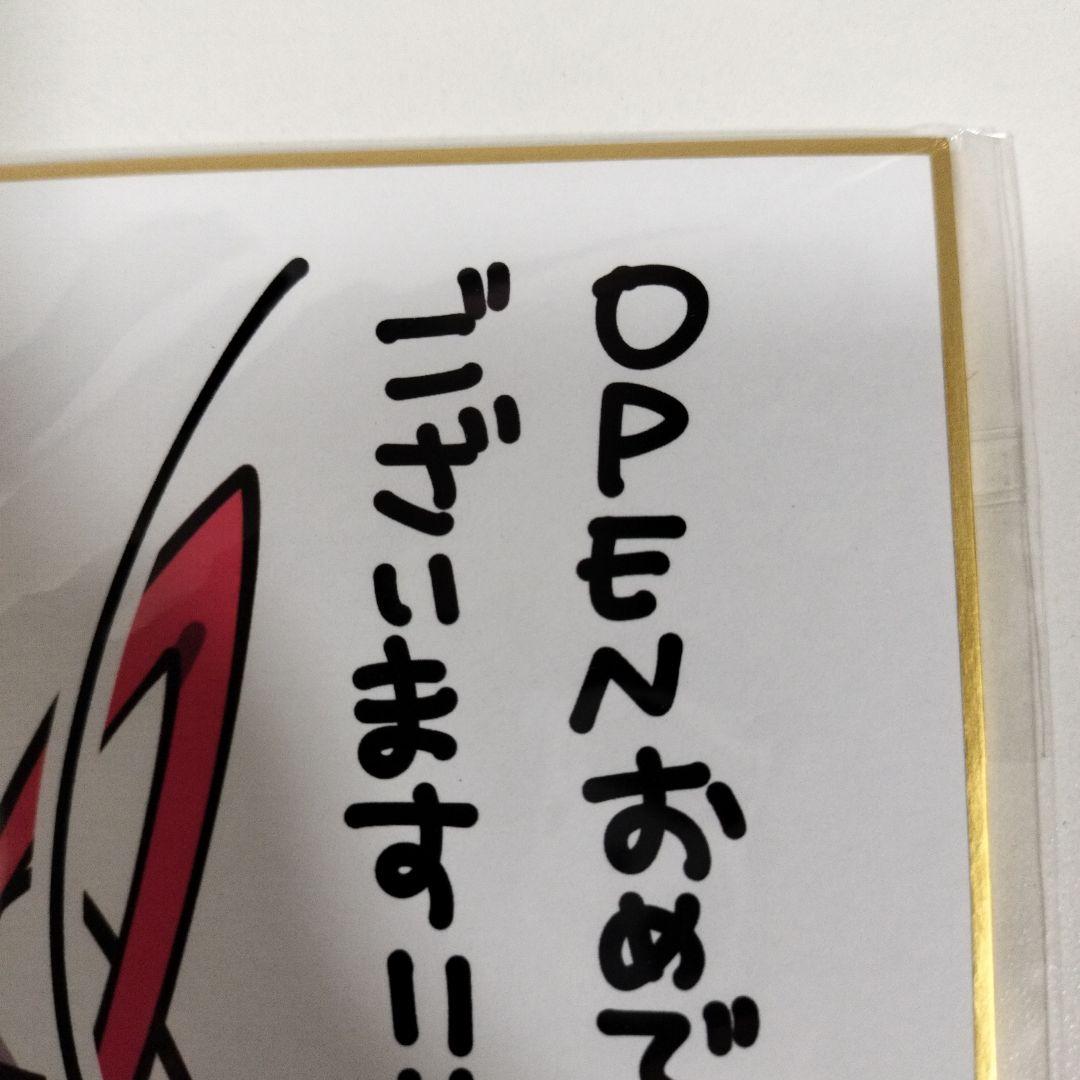 OPENおめで
ございます!!